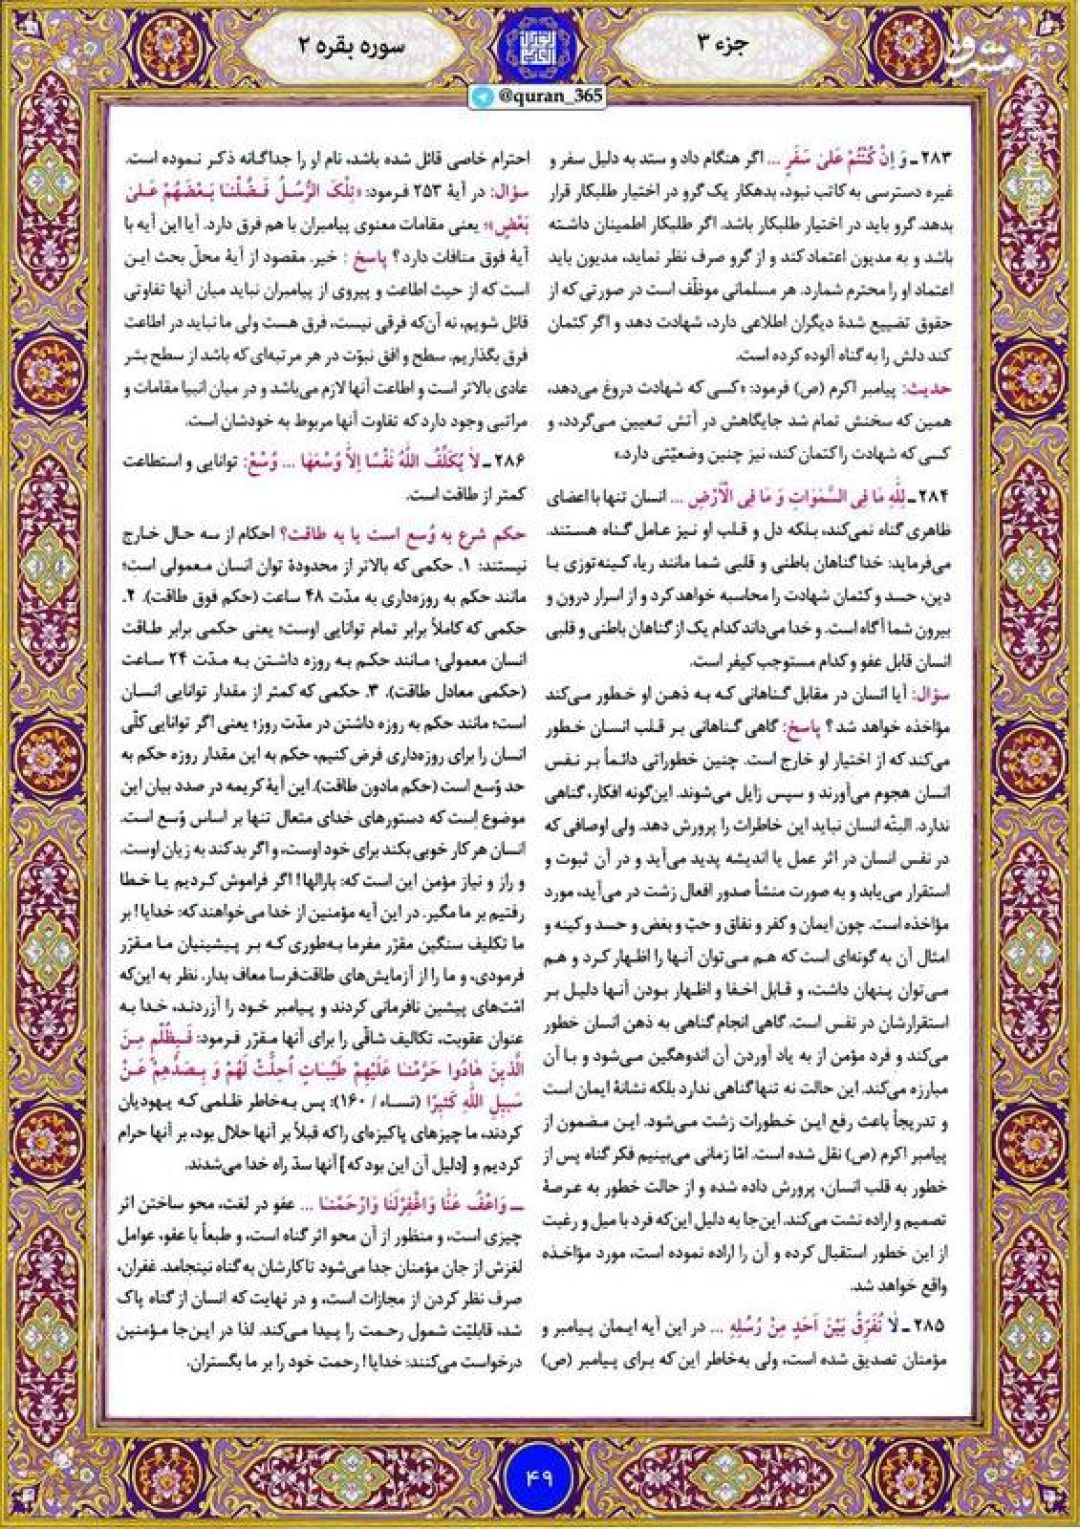 جزء ۳
سوره بقره ۲
@quran_365
۲۸۳ـ وَ اِنْ كُنْتُمْ عَلىٰ سَفَرٍ ... اگر هنگام داد و ستد به دلیل سفر و
غیره دسترسی به کاتب نبود، بدهکار یک گرو در اختیار طلبکار قرار
بدهد. گرو باید در اختیار طلبکار باشد. اگر طلبکار اطمینان داشته
باشد و به مدیون اعتماد کند و از گرو صرف نظر نماید، مدیون باید
اعتماد او را محترم شمارد. هر مسلمانی موظّف است در صورتی که از
حقوق تضییع شدهٔ دیگران اطلاعی دارد، شهادت دهد و اگر کتمان
کند دلش را به گناه آلوده کرده است.
حدیث: پیامبر اکرم (ص) فرمود: «کسی که شهادت دروغ می‌دهد،
همین که سخنش تمام شد جایگاهش در آتش تعیین می‌گردد، و
کسی که شهادت را کتمان کند، نیز چنین وضعیّتی دارد.»
۲۸۴ـ لِلّٰهِ مَا فِی السَّمٰوَاتِ وَ مَا فِی الْاَرْضِ ... انسان تنها با اعضای
ظاهری گناه نمی‌کند، بلکه دل و قلب او نیز عامل گناه هستند.
می‌فرماید: خدا گناهان باطنی و قلبی شما مانند ریا، کینه‌توزی با
دین، حسد و کتمان شهادت را محاسبه خواهد کرد و از اسرار درون و
بیرون شما آگاه است. و خدا می‌داند کدام یک از گناهان باطنی و قلبی
انسان قابل عفو و کدام مستوجب کیفر است.
سؤال: آیا انسان در مقابل گناهانی که به ذهن او خطور می‌کند
مؤاخذه خواهد شد؟ پاسخ: گاهی گناهانی بر قلب انسان خطور
می‌کند که از اختیار او خارج است. چنین خطوراتی دائماً بر نفس
انسان هجوم می‌آورند و سپس زایل می‌شوند. این‌گونه افکار، گناهی
ندارد. البتّه انسان نباید این خاطرات را پرورش دهد. ولی اوصافی که
در نفس انسان در اثر عمل یا اندیشه پدید می‌آید و در آن ثبوت و
استقرار می‌یابد و به صورت منشأ صدور افعال زشت در می‌آید، مورد
مؤاخذه است. چون ایمان و کفر و نفاق و حبّ و بغض و حسد و کینه و
امثال آن به گونه‌ای است که هم می‌توان آنها را اظهار کرد و هم
می‌توان پنهان داشت، و قابل اخفا و اظهار بودن آنها دلیل بر
استقرارشان در نفس است. گاهی انجام گناهی به ذهن انسان خطور
می‌کند و فرد مؤمن از به یاد آوردن آن اندوهگین می‌شود و با آن
مبارزه می‌کند. این حالت نه تنها گناهی ندارد بلکه نشانهٔ ایمان است
و تدریجاً باعث رفع این خطورات زشت می‌شود. این مضمون از
پیامبر اکرم (ص) نقل شده است. امّا زمانی می‌بینیم فکر گناه پس از
خطور به قلب انسان، پرورش داده شده و از حالت خطور به عرصهٔ
تصمیم و اراده نشت می‌کند. این‌جا به دلیل این‌که فرد با میل و رغبت
از این خطور استقبال کرده و آن را اراده نموده است، مورد مؤاخذه
واقع خواهد شد.
۲۸۵ـ لَا نُفَرِّقُ بَیْنَ اَحَدٍ مِنْ رُسُلِهِ ... در این آیه ایمان پیامبر و
مؤمنان تصدیق شده است، ولی به‌خاطر این که برای پیامبر (ص)
احترام خاصی قائل شده باشد، نام او را جداگانه ذکر نموده است.
سؤال: در آیهٔ ۲۵۳ فرمود: «تِلْكَ الرُّسُلُ فَضَّلْنَا بَعْضَهُمْ عَلىٰ
بَعْضٍ»؛ یعنی مقامات معنوی پیامبران با هم فرق دارد. آیا این آیه با
آیهٔ فوق منافات دارد؟ پاسخ : خیر. مقصود از آیهٔ محلّ بحث این
است که از حیث اطاعت و پیروی از پیامبران نباید میان آنها تفاوتی
قائل شویم، نه آن‌که فرقی نیست، فرق هست ولی ما نباید در اطاعت
فرق بگذاریم. سطح و افق نبوّت در هر مرتبه‌ای که باشد از سطح بشر
عادی بالاتر است و اطاعت آنها لازم می‌باشد و در میان انبیا مقامات و
مراتبی وجود دارد که تفاوت آنها مربوط به خودشان است.
۲۸۶ـ لَا یُکَلِّفُ اللّٰهُ نَفْسًا اِلَّا وُسْعَهَا ... وُسْعْ: توانایی و استطاعت
کمتر از طاقت است.
حکم شرع به وُسع است یا به طاقت؟ احکام از سه حال خارج
نیستند: ۱. حکمی که بالاتر از محدودهٔ توان انسان معمولی است؛
مانند حکم به روزه‌داری به مدّت ۴۸ ساعت (حکم فوق طاقت). ۲.
حکمی که کاملاً برابر تمام توانایی اوست؛ یعنی حکمی برابر طاقت
انسان معمولی؛ مانند حکم به روزه داشتن به مدّت ۲۴ ساعت
(حکمی معادل طاقت). ۳. حکمی که کمتر از مقدار توانایی انسان
است؛ مانند حکم به روزه داشتن در مدّت روز؛ یعنی اگر توانایی کلّی
انسان را برای روزه‌داری فرض کنیم، حکم به این مقدار روزه حکم به
حد وُسع است (حکم مادون طاقت). این آیهٔ کریمه در صدد بیان این
موضوع است که دستورهای خدای متعال تنها بر اساس وُسع است.
انسان هر کار خوبی بکند برای خود اوست، و اگر بد کند به زیان اوست.
و راز و نیاز مؤمن این است که: بارالها! اگر فراموش کردیم یا خطا
رفتیم بر ما مگیر. در این آیه مؤمنین از خدا می‌خواهند که: خدایا! بر
ما تکلیف سنگین مقرّر مفرما به‌طوری که بر پیشینیان ما مقرّر
فرمودی، و ما را از آزمایش‌های طاقت‌فرسا معاف بدار. نظر به این‌که
امّت‌های پیشین نافرمانی کردند و پیامبر خود را آزردند، خدا به
عنوان عقوبت، تکالیف شاقّی را برای آنها مقرّر فرمود: فَبِظُلْمٍ مِنَ
الَّذِینَ هَادُوا حَرَّمْنَا عَلَیْهِمْ طَیِّبَاتٍ اُحِلَّتْ لَهُمْ وَ بِصَدِّهِمْ عَنْ
سَبِیلِ اللّٰهِ کَثِیرًا (نساء / ۱۶۰): پس به‌خاطر ظلمی که یهودیان
کردند، ما چیزهای پاکیزه‌ای را که قبلاً بر آنها حلال بود، بر آنها حرام
کردیم و [دلیل آن این بود که] آنها سدّ راه خدا می‌شدند.
ـ وَاعْفُ عَنَّا وَاغْفِرْلَنَا وَارْحَمْنَا ... عفو در لغت، محو ساختن اثر
چیزی است، و منظور از آن محو اثر گناه است، و طبعاً با عفو، عوامل
لغزش از جان مؤمنان جدا می‌شود تا کارشان به گناه نینجامد. غفران،
صرف نظر کردن از مجازات است، و در نهایت که انسان از گناه پاک
شد، قابلیّت شمول رحمت را پیدا می‌کند. لذا در این‌جا مؤمنین
درخواست می‌کنند: خدایا! رحمت خود را بر ما بگستران.
۴۹